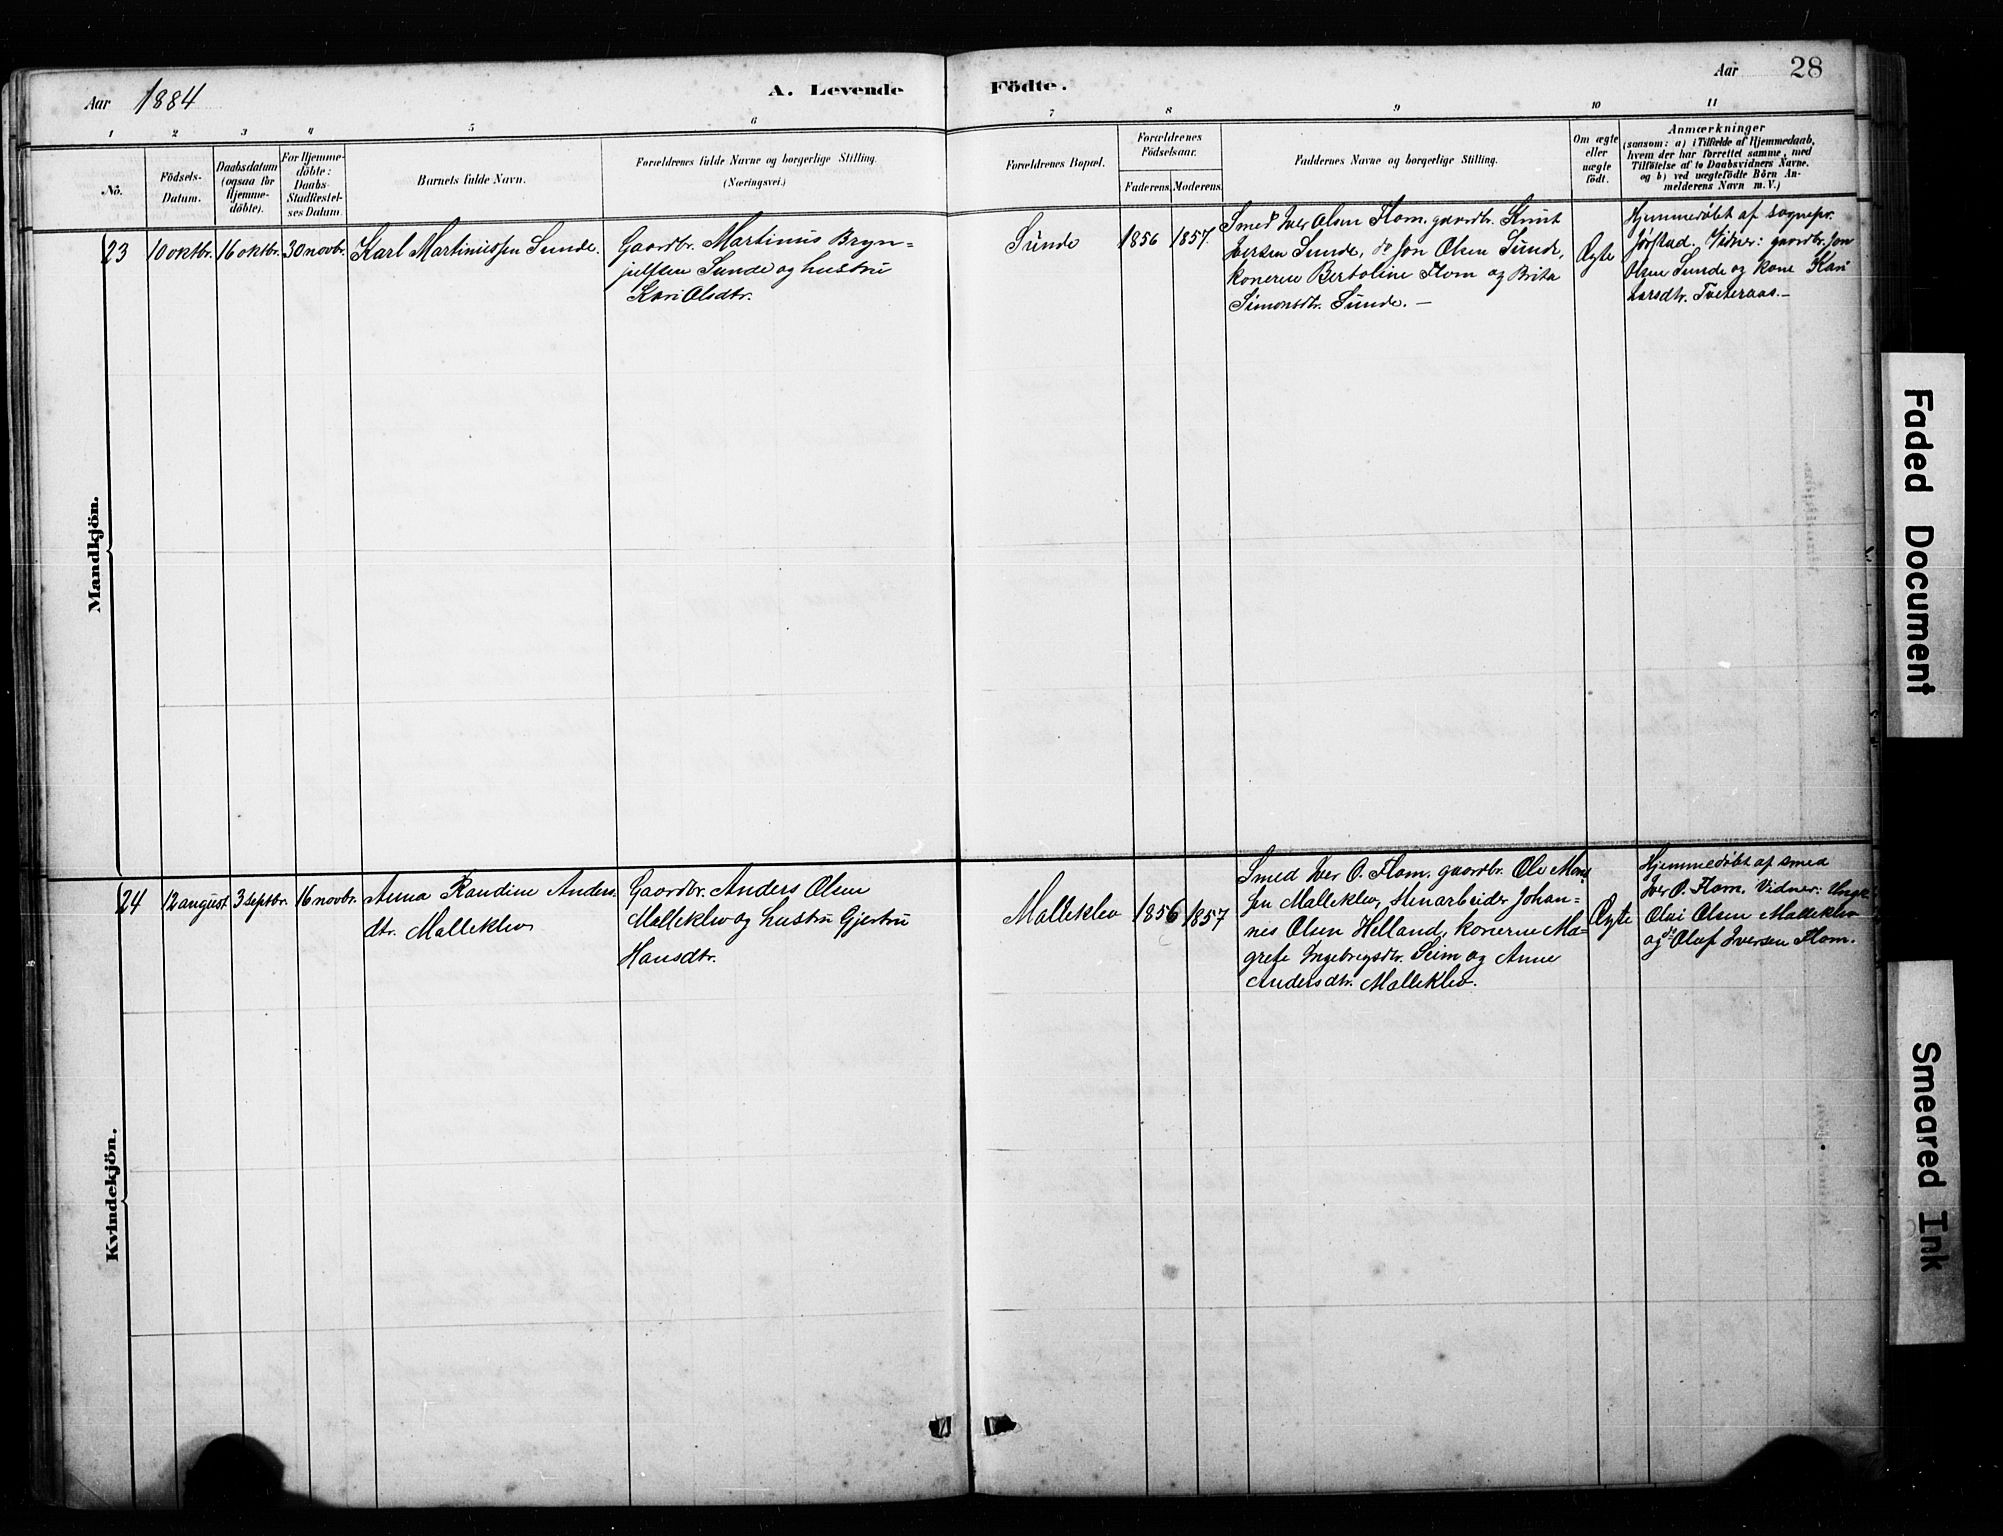 Aar 1884
A. Levende Födte.
Aar 28
1 2 3 4 5 6 7 8 9 10 11
No.
Födsels-
Datum.
Daabsdatum
(ogsaa for
Hjemme-
döbte).
For Hjemme-
döbte:
Daabs-
Stadfæstel-
ses Datum.
Barnets fulde Navn.
Forældrenes fulde Navne og borgerlige Stilling.
(Næringsvei.)
Forældrenes Bopæl.
Forældrenes
Födselsaar.
Faderens. Moderens.
Faddernes Navne og borgerlige Stilling.
Om ægte
eller
uægte
födt.
Anmærkninger
(saasom: a) i Tilfælde af Hjemmedaab,
hvem der har forrettet samme, med
Tilföielse af to Daabsvidners Navne.
og b) ved uægtefödte Börn An-
melderens Navn m. V.)
Mandkjön.
23
10 oktbr.
16 oktbr.
30 novbr.
Karl Martinussen Sunde.
Gaardbr. Martinus Bryn-
julfsen Sunde og hustru
Kari Olsdtr.
Sunde
1856
1857.
Smed Iver Olsen Flom, gaardbr. Knut
Iversen Sunde, do Jon Olsen Sunde,
konerne Bertoline Flom og Brita
Simonsdtr. Sunde. —
Ægte
Hjemmedöbt af sognepr.
Jørstad. Vidner: gaardbr. Jon
Olsen Sunde og kone Kari
Larsdtr. Tveteraas. —
Kvindekjön.
24
12 august
3 septbr.
16 novbr.
Anna Randine Anders-
dtr. Malleklev
Gaardbr. Anders Olsen
Malleklev og hustru Gjertru
Hansdtr.
Malleklev
1856
1857
Smed Iver O. Flom, gaardbr. Ole Mon-
sen Malleklev, Stenarbeider Johan-
nes Olsen Helland, konerne Ma-
grete Ingebrigsdtr. Seim og Anne
Andersdtr. Malleklev.
Ægte
Hjemmedöbt af smed
Iver O. Flom. Vidner: Ungk.
Olai Olsen Malleklev
og do Oluf Iversen Flom.
Faded Document
Smeared Ink